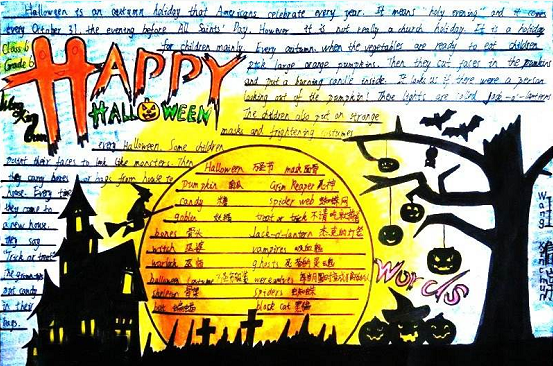 Halloween is an autumn holiday that Americans celebrate every year. It means "holy evening" and it comes
every October 31, the evening before All Saints' Day. However it is not really a church holiday. It is a holiday
for children mainly. Every autumn when the vegetables are ready to eat children
pick large orange pumpkins. Then they cut faces in the pumpkins
and put a burning candle inside. It looks as if there were a person
looking out of the pumpkin! These lights are called jack-o'-lanterns
The children also put on strange
masks and frightening costumes
every Halloween. Some children
paint their faces to look like monsters. Then
they carry boxes or bags from house to
house. Every time
they come to
a new house
they say
Trick or treat
in their
bags.
Class 6
Grade 6
HAPPY
HALLOWEEN
Halloween 万圣节 mask 面管
Pumpkin 南瓜 Grim Reaper 死神
candy 糖 spider web 蜘蛛网
goblin 妖怪 treat or trick 不请吃就捣蛋
bones 骨头 Jack-o'-lantern 杰克的灯笼
witch 巫婆 vampires 吸血鬼
warlock 巫师 ghosts
halloween costume werewolves
skeleton 骨架 spiders 蜘蛛
bat black cat 黑猫
Words